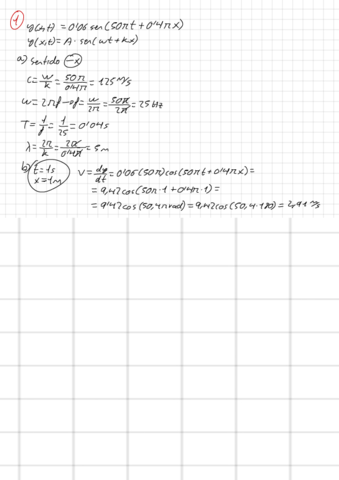 1
y(x,t) = 0'06 sen(50πt + 0'4πx)
y(x,t) = A · sen(wt + kx)
a) sentido (-x)
c = w/k = 50π/0'4π = 125 m/s
w = 2πf → f = w/2π = 50π/2π = 25 Hz
T = 1/f = 1/25 = 0'04 s
λ = 2π/k = 2π/0'4π = 5 m
b) t = 1s
x = 1m
v = dy/dt = 0'06(50π)cos(50πt + 0'4πx) =
= 9,42cos(50π·1 + 0'4π·1) =
= 9'42cos(50,4π rad) = 9,42cos(50,4·180) = 2,91 m/s